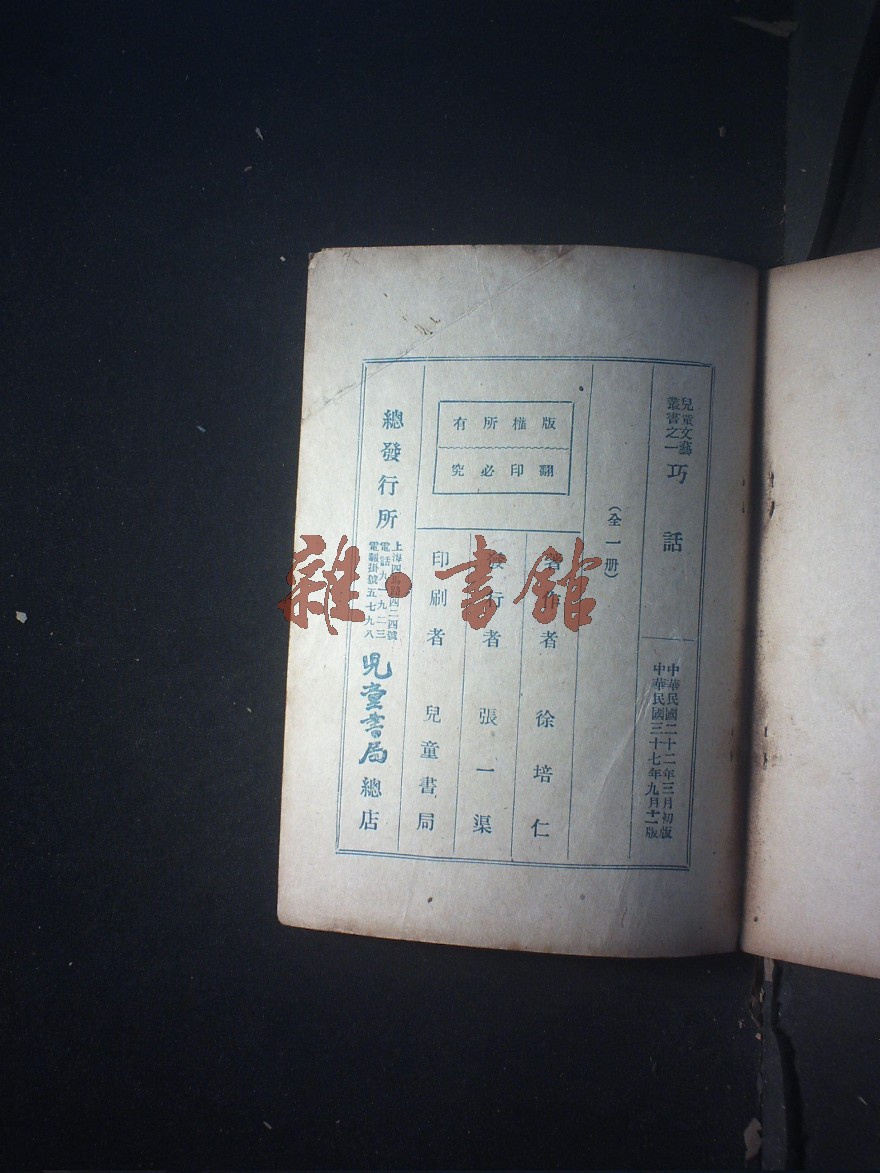 兒童文藝
叢書之一
巧話
中華民國二十二年三月初版
中華民國三十七年九月十一版
(全一册)
版權所有
翻印必究
著作者 徐培仁
發行者 張一渠
印刷者 兒童書局
總發行所
上海四馬路四二四號
電話九一九二三
電報掛號五七九八
兒童書局總店
雜·書館